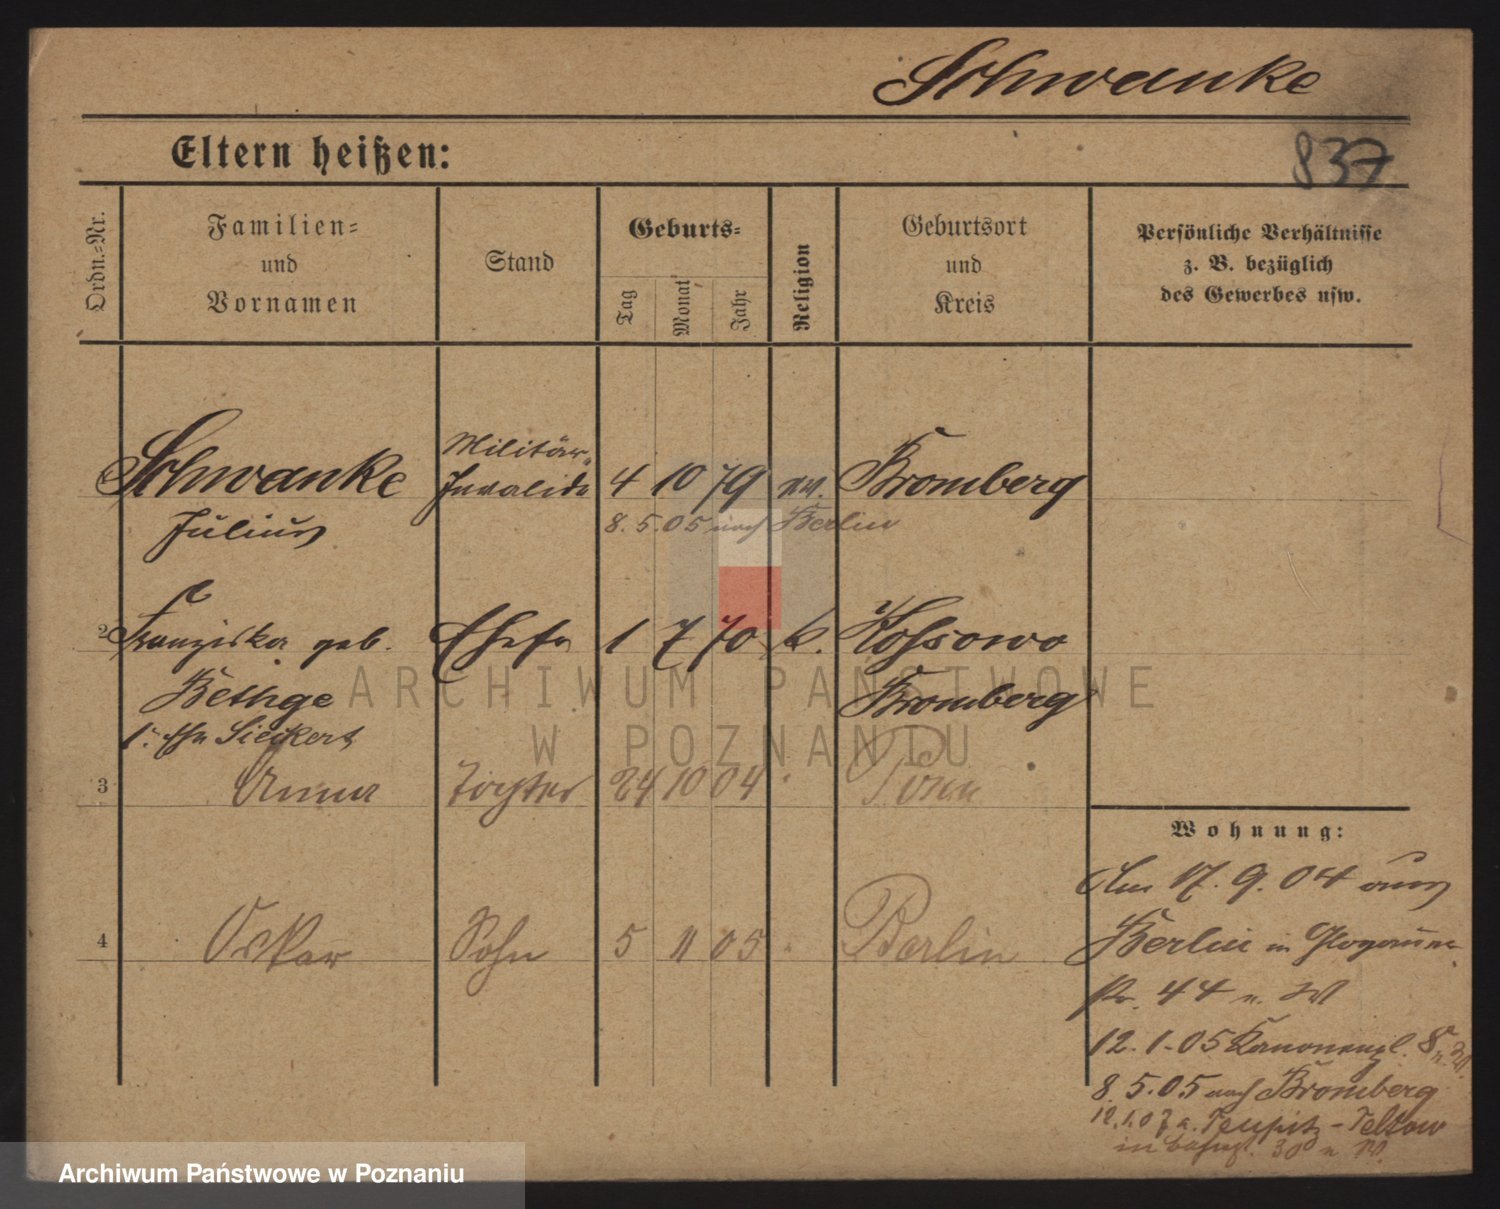 Schwanke
Eltern heißen:
837
Ordn.=Nr.
Familien=
und
Vornamen
Stand
Geburts=
Tag
Monat
Jahr
Religion
Geburtsort
und
Kreis
Persönliche Verhältnisse
z. B. bezüglich
des Gewerbes usw.
Schwanke Militär- 4 10 79 ev. Bromberg
Invalide
Julius
8. 5. 05 nach Berlin
2 Franziska geb. Ehefr 1 7 70 k.
Bethge Bromberg
Sieckert
3 Anna Tochter 24 10 04 Posen
4 Oskar Sohn 5 11 05 Berlin
Wohnung:
Am 17. 9. 04 aus
Berlin in Glogauer
Str. 44 n. W
12. 1. 05 Kanonenpl. 8
8. 5. 05 nach Bromberg
12. 1. 07 a. Teupitz - Teltow
in 30 n W.
ARCHIWUM PAŃSTWOWE
W POZNANIU
Archiwum Państwowe w Poznaniu